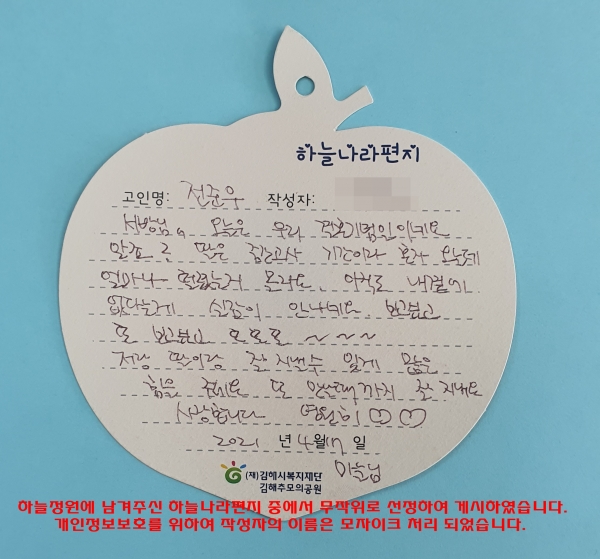 하늘나라편지
고인명: 전준우 작성자:
서방님 오늘은 우리 결혼기념일이네요
딸은 중간고사 기간이라 혼자 오는데
얼마나 힘들었는지 몰라요 아직도 내곁에
없다는게 실감이 안나네요 보고
또 보고 또
저랑 딸이랑 잘 지낼수 있게 많은
힘을 주세요 또 만날때까지 잘 지내요
사랑합니다 영원히 ♡♡
2021 년 4월 17 일
마눌님
(재)김해시복지재단
김해추모의공원
하늘정원에 남겨주신 하늘나라편지 중에서 무작위로 선정하여 게시하였습니다.
개인정보보호를 위하여 작성자의 이름은 모자이크 처리 되었습니다.